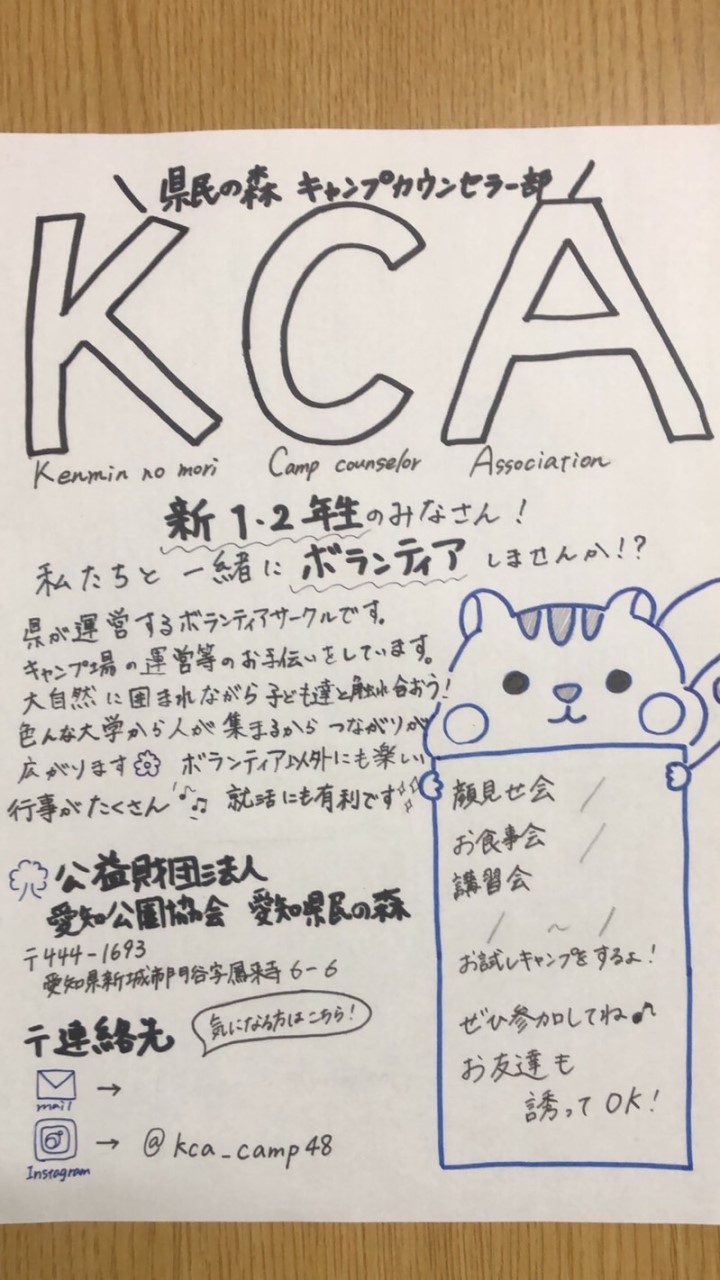 県民の森 キャンプカウンセラー部
KCA
Kenmin no mori Camp counselor Association
新1・2年生のみなさん！
私たちと一緒にボランティアしませんか!?
県が運営するボランティアサークルです。
キャンプ場の運営等のお手伝いをしています。
大自然に囲まれながら子ども達と触れ合おう！
色んな大学から人が集まるからつながりが
広がります ボランティア以外にも楽しい
行事がたくさん♪♫ 就活にも有利です
顔見せ会 /
お食事会 /
講習会
/ ~ /
お試しキャンプをするよ！
ぜひ参加してね♪
お友達も
誘ってOK！
公益財団法人
愛知公園協会 愛知県民の森
〒444-1693
愛知県新城市門谷字鳳来寺6-6
〒連絡先 気になる方はこちら！
mail →
Instagram → @kca_camp48